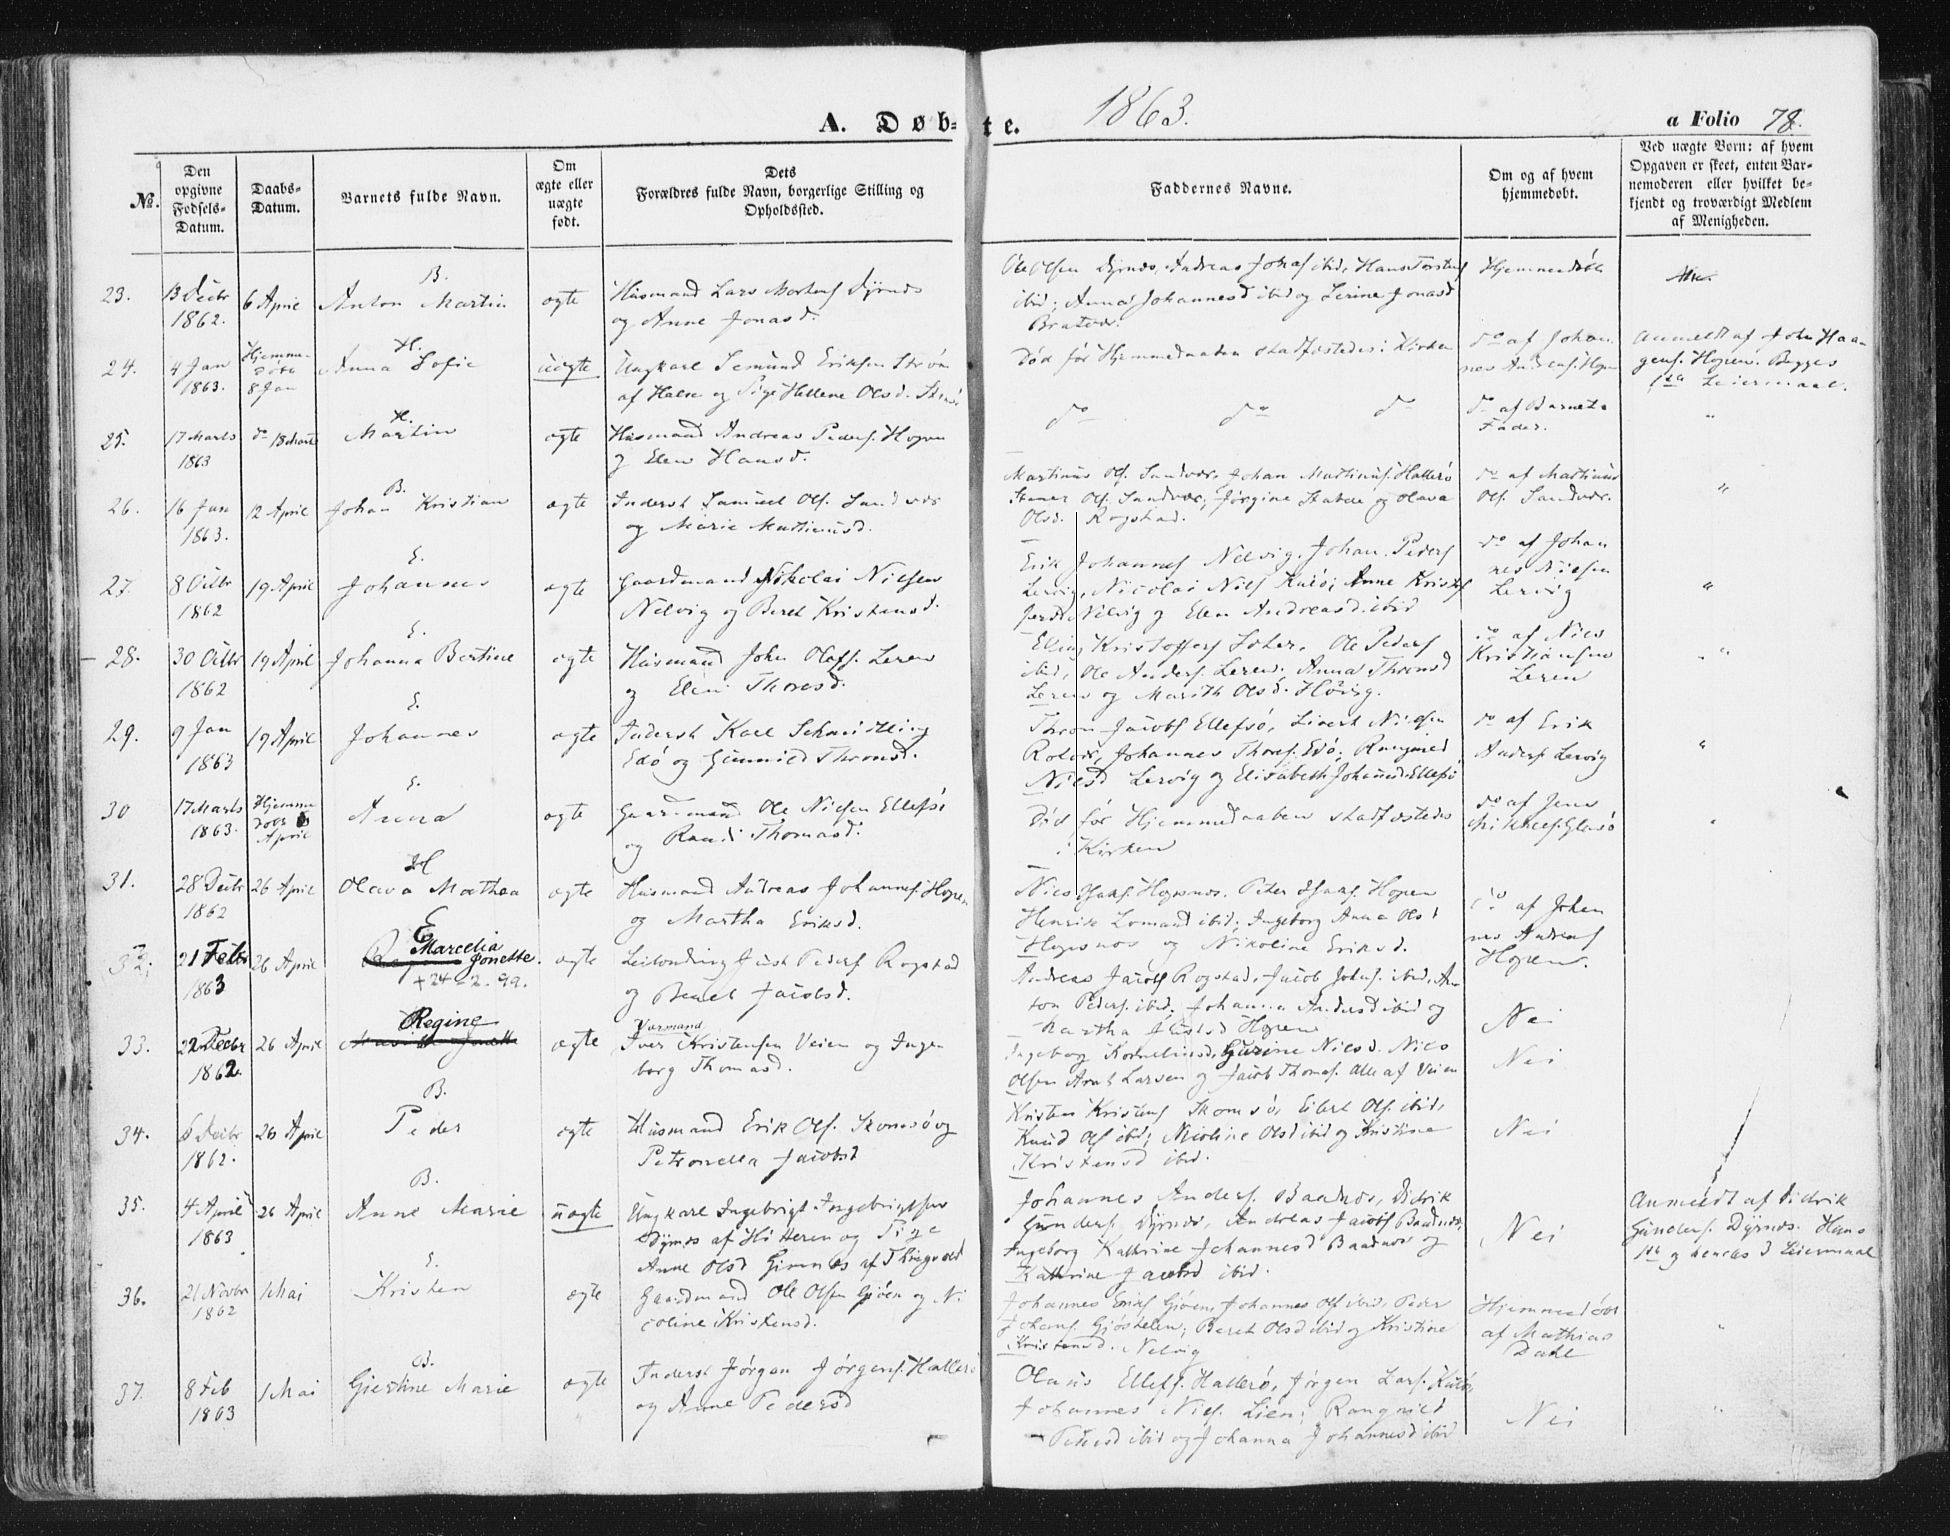 A. Døb-te. 1863. a Folio 78.
No.
Den opgivne Fødsels-Datum.
Daabs-Datum.
Barnets fulde Navn.
Om ægte eller uægte født.
Dets Forældres fulde Navn, borgerlige Stilling og Opholdssted.
Faddernes Navne.
Om og af hvem hjemmedøbt.
Ved uægte Børn: af hvem Opgaven er skeet, enten Barnemoderen eller hvilket bekjendt og troværdigt Medlem af Menigheden.
B.
23. 13 Decbr 1862. 6 April Anton Martin ægte
Husmand Lars Mortens Dyrnes
og Anne Jonasd.
Ole Olsen Dyrnes, Andreas Johns ibid, Hans Torstens
ibid; Anna Johannesd ibid og Serine Jonasd
Bratvær.
Hjemmedøbt
H.
24. 4 Jan 1863. Hjemmedøbt 8 Jan Anna Sofie uægte
Ungkarl Semund Eriksen Strøm
af Halsen og Pige Hellene Olsd.
Død før Hjemmedaaben stadfæstedes i Kirken
do af Johannes Andreas. Hopen
Anmeldt af John Haagens. Hopen. Begges
1ste Leiermaal.
H.
25. 17 Marts 1863 do 18 Marts Martin ægte
Husmand Andreas Peders. Hopen
og Elen Hansd.
do do do
do af Barnets
Fader.
"
B.
26. 16 Jan 1863. 12 April Johan Kristian ægte
Inderst Samuel Ols. Sandvær
og Marie Martinusd.
Martinus Ols. Sandvær, Johan Martinus. Hallerø
Stener Ols. Sandvær; Jørgine Stabel og Olava
Olsd. Rogstad.
do af Martinus
Ols. Sandvær.
"
E.
27. 8 Octbr 1862 19 April Johannes ægte
Gaardmand Nikolai Nielsen
Nelvig og Beret Kristensd.
Erik Johannes Nelvig, Johan Peders
Lervig, Nicolai Niels Kulø; Anne Kristofferd.
Nelvig og Elen Andreasd. ibid
do af Johannes Nielsen
Lervig
"
E.
28. 30 Octbr 1862 19 April Johanna Bertine ægte
Husmand John Olass. Leren
og Elen Thoresd.
Elling Kristoffers Sæter, Ole Peders
ibid, Ole Anders. Leren; Anna Thronsd
Leren og Marith Olsd.
do af Niels
Kristiansen
Leren
"
E.
29. 9 Jan 1863 19 April Johannes ægte
Inderst Karl Schmidtling
Edø og Gunnild Thronsd.
Thron Jacobs Ellefsø, Sivert Nielsen
Johannes Thores. Edø; Rangnild
Nilsd Lervig og Elisabeth Johansd. Ellefsø
do af Erik
Anders Lervig
"
E.
30 17 Marts 1863. Hjemmedøbt April Anna ægte
Gaardmand Ole Nielsen Ellefsø
og Randi Thomasd.
Død før Hjemmedaaben stadfæstedes
i Kirken
do af Jens
Mikkels.
H
31. 28 Decbr 1862 26 April Olava Mathea ægte
Husmand Andreas Johannes. Hopen
og Martha Eriksd.
Niels Isaks. Hopsnes. Peter Isaks. Hopen
Henrik Lomand ibid; Ingeborg Anna Olsd
Hopsnes og Nikoline Eriksd.
do af Johannes Andreas
Hopen.
E
32. 21 Febr 1863 26 April Marcelia Jonette.
+24-2.99. ægte
Leilending Just Peders Rogstad
og Beret Jacobsd.
Andreas Jacobs Rogstad, Jacob Johns. ibid, Anton Peders. ibid; Johanna Andersd ibid og
Martha Justsd Hopen
Nei
33. 22 Decbr 1862. 26 April Regine ægte
Varmand
Iver Kristensen Veien og Ingeborg Thomasd.
Ingeborg Kornelinsd, Gurine Nielsd. Niels
Olsen Arnt Larsen og Jacob Thomas. alle af Veien
Nei
B.
34. 6 Decbr 1862. 26 April Peder ægte
Husmand Erik Ols. Skomsø og
Petronella Jacobsd
Kristen Kristens Skomsø, Eilert Ols. ibid,
Knud Ols ibid; Nicoline Olsd ibid og Kristine
Kristensd ibid.
Nei
B.
35. 4 April 1863 26 April Anne Marie uægte
Ungkarl Ingebrigt Ingebrigtsen
Dyrnes af Hitteren og Pige
Anne Olsd Gimnes af Thingvold
Johannes Anders. Baadnes, Didrik
Gunders. Dyrnes, Andreas Jacobs Baadnes,
Ingeborg Kathrine Johannesd Baadnes og
Kathrine Jacobsd ibid.
Nei
Anmeldt af Didrik
Gunders. Dyrnes. Hans
1ste og hendes 3 Leiermaal
E.
36. 21 Novbr 1862 1 Mai Kristen ægte
Gaardmand Ole Olsen Gjøen og Nicoline Kristensd.
Johannes Eriks Gjøen, Johannes Ols ibid, Peder
Johans. Gjøstølen; Beret Olsd ibid og Kristine
Kristensd. Nelvig
Hjemmedøbt
af Mathias
Dahl
"
B.
37. 8 Feb 1863 1 Mai Gjertine Marie ægte
Inderst Jørgen Jørgens. Hallerø
og Anne Pedersd
Olaus Ellefs. Hallerø, Jørgen Lars. Kulø,
Johannes Niels. Lien; Rangnild
Pedersd ibid og Johanna Johannesd ibid
Nei
"